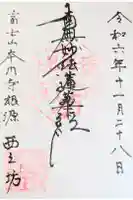 令和六年十一月二十八日
南無妙法蓮華経
富士山本門寺根源
西之坊